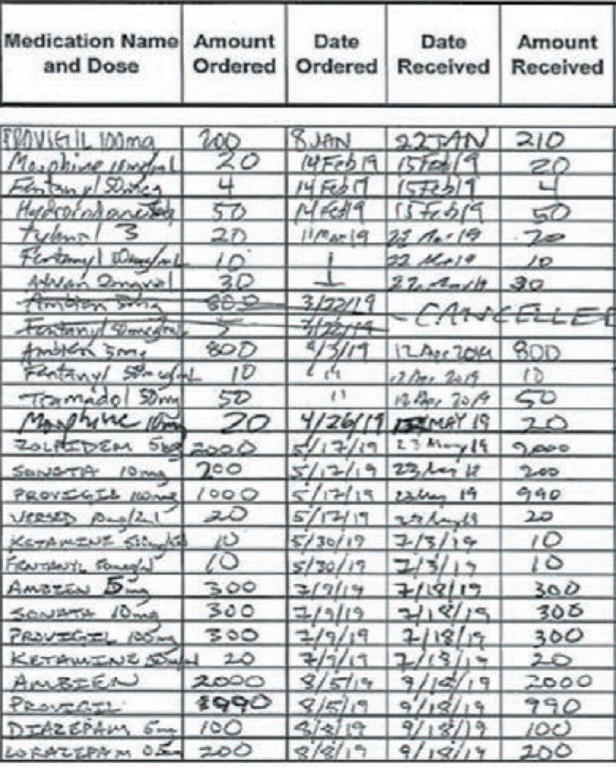 Medication Name and Dose Amount Ordered Date Ordered Date Received Amount Received
PROVIGIL 100mg 200 8 JAN 22 JAN 210
Morphine 10mg/ml 20 14 Feb 19 15 Feb 19 20
Fentanyl 50mcg 4 14 Feb 19 15 Feb 19 4
50 14 Feb 19 15 Feb 19 50
Tylenol 3 20 11 Mar 19 22 Mar 19 20
Fentanyl 10 22 Mar 19 10
Ativan 2mg 30 22 Mar 19 30
Ambien 5mg 800 3/22/19 CANCELLED
Fentanyl 50mcg/ml 5 3/22/19
Ambien 5mg 800 4/3/19 12 Apr 2019 800
Fentanyl 50mcg/ml 10 " 12 Apr 2019 10
Tramadol 50mg 50 " 12 Apr 2019 50
Morphine 10mg 20 4/26/19 MAY 19 20
ZOLPIDEM 5mg 2000 5/17/19 23 May 19 2000
SONATA 10mg 200 5/17/19 23 May 19 200
PROVIGIL 100mg 1000 5/17/19 23 May 19 990
VERSED 20 5/17/19 23 May 19 20
KETAMINE 10 5/30/19 7/3/19 10
FENTANYL 50mcg/ml 10 5/30/19 7/3/19 10
AMBIEN 5mg 300 7/9/19 7/18/19 300
SONATA 10mg 300 7/9/19 7/18/19 300
PROVIGIL 100mg 300 7/9/19 7/18/19 300
KETAMINE 20 7/9/19 7/18/19 20
AMBIEN 2000 8/5/19 9/18/19 2000
PROVIGIL 990 8/5/19 9/18/19 990
DIAZEPAM 100 8/8/19 9/18/19 100
LORAZEPAM 200 8/8/19 9/18/19 200